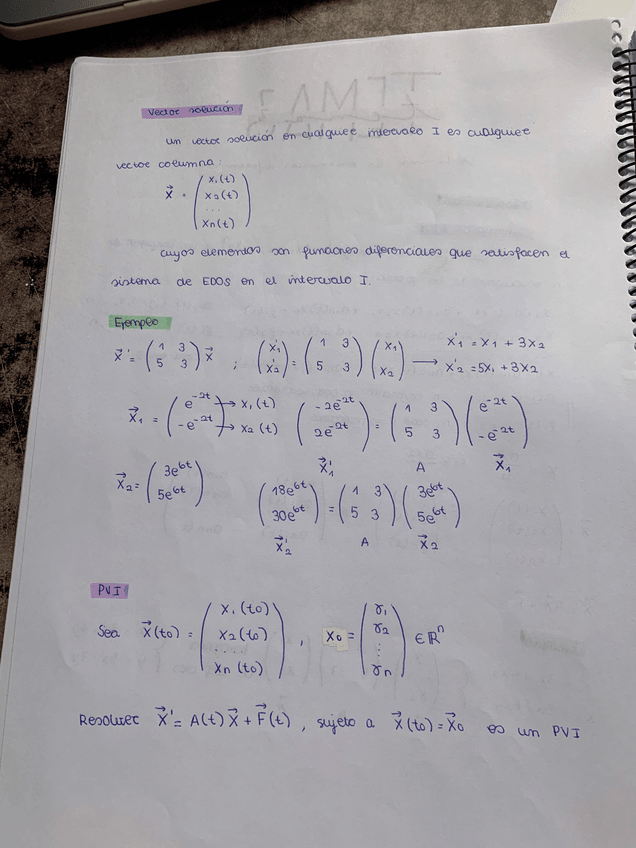 Vector solución
Un vector solución en cualquier intervalo I es cualquier
vector columna:
x⃗ = ( x₁(t) x₂(t) ... xn(t) )
cuyos elementos son funciones diferenciales que satisfacen el
sistema de EDOS en el intervalo I.
Ejemplo
x⃗' = ( 1 3 5 3 ) x⃗ ; ( x'₁ x'₂ ) = ( 1 3 5 3 ) ( x₁ x₂ ) → x'₁ = x₁ + 3x₂
x'₂ = 5x₁ + 3x₂
x⃗₁ = ( e^-2t -e^-2t ) → x₁(t) → x₂(t) ( -2e^-2t 2e^-2t ) = ( 1 3 5 3 ) ( e^-2t -e^-2t )
x⃗'₁ A x⃗₁
x⃗₂ = ( 3e^6t 5e^6t ) ( 18e^6t 30e^6t ) = ( 1 3 5 3 ) ( 3e^6t 5e^6t )
x⃗'₂ A x⃗₂
PVI
Sea x⃗(t0) = ( x₁(t0) x₂(t0) ... xn(t0) ) , x0 = ( γ₁ γ₂ ⋮ γn ) ∈ ℝⁿ
Resolver x⃗' = A(t) x⃗ + F⃗(t) , sujeto a x⃗(t0) = x⃗0 es un PVI